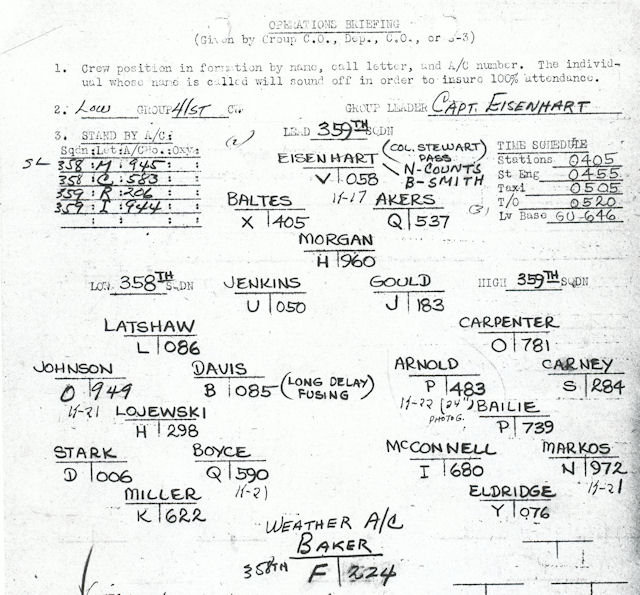 OPERATIONS BRIEFING
(Given by Group C.O., Dep., C.O., or S-3)
1. Crew position in formation by name, call letter, and A/C number. The individ-
ual whose name is called will sound off in order to insure 100% attendance.
2. LOW GROUP 41ST CW GROUP LEADER CAPT. EISENHART
3. STAND BY A/C: (2) LEAD 359TH SQDN
Sqdn:Let:A/CNo.:Oxy:
SL 358 : M : 945 :
358 : C : 583 :
359 : R : 206 :
359 : I : 944 :
EISENHART
V 058
(COL. STEWART
PASS
N-COUNTS
B-SMITH
TIME SCHEDULE
Stations 0405
St Eng 0455
Taxi 0505
T/O 0520
Lv Base GU-646
(3)
BALTES
X 405
K-17
AKERS
Q 537
MORGAN
H 960
LOW 358TH SQDN
JENKINS
U 050
GOULD
J 183
HIGH 359TH SQDN
LATSHAW
L 086
CARPENTER
O 781
JOHNSON
O 949
K-21
DAVIS
B 085 (LONG DELAY
FUSING)
ARNOLD
P 483
K-22 (24")
PHOTOG.
CARNEY
S 284
LOJEWSKI
H 298
BAILIE
P 739
STARK
D 006
BOYCE
Q 590
K-21
McCONNELL
I 680
MARKOS
N 972
K-21
MILLER
K 622
ELDRIDGE
Y 076
WEATHER A/C
BAKER
358TH F 224